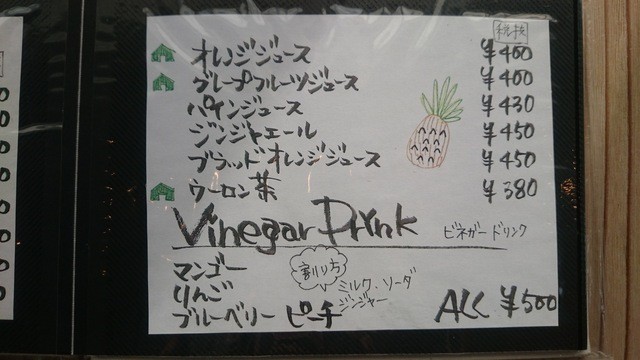 税抜
オレンジジュース ¥400
グレープフルーツジュース ¥400
パインジュース ¥430
ジンジャエール ¥450
ブラッドオレンジジュース ¥450
ウーロン茶 ¥380
Vinegar Drink ビネガードリンク
マンゴー
りんご
ブルーベリー ピーチ
割り方
ミルク・ソーダ
ジンジャー
ALL ¥500